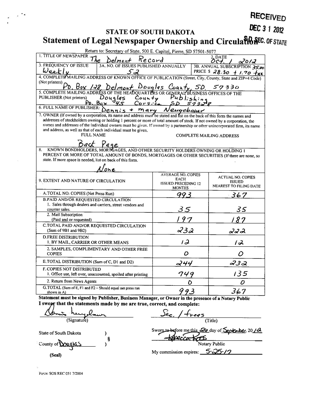 RECEIVED
DEC 31 2012
S.D. SEC. OF STATE
STATE OF SOUTH DAKOTA
Statement of Legal Newspaper Ownership and Circulation
Return to: Secretary of State, 500 E. Capitol, Pierre, SD 57501-5077
1. TITLE OF NEWSPAPER The Delmont Record
2. DATE Oct 1 2012
3. FREQUENCY OF ISSUE Weekly
3A. NO. OF ISSUES PUBLISHED ANNUALLY 52
3B. ANNUAL SUBSCRIPTION
PRICE $ 28.50 + 1.70 tax
4. COMPLETE MAILING ADDRESS OF KNOWN OFFICE OF PUBLICATION (Street, City, County, State and ZIP+4 Code)
(Not printers) P.O. Box 128 Delmont Douglas County, SD 57330
5. COMPLETE MAILING ADDRESS OF THE HEADQUARTERS OR GENERAL BUSINESS OFFICES OF THE
PUBLISHER (Not printer) Douglas County Publishing
P.O. Box 45 Corsica SD 57328
6. FULL NAME OF PUBLISHER: Dennis + Mary
7. OWNER (If owned by a corporation, its name and address must be stated and the names and
addresses of stockholders owning or holding 1 percent or more of total amount of stock. If not owned by a corporation, the
names and addresses of the individual owners must be given. If owned by a partnership or other unincorporated firm, its name
and address, as well as that of each individual must be given.
FULL NAME
COMPLETE MAILING ADDRESS
Back Page
8. KNOWN BONDHOLDERS, MORTGAGES, AND OTHER SECURITY HOLDERS OWNING OR HOLDING 1
PERCENT OR MORE OF TOTAL AMOUNT OF BONDS, MORTGAGES OR OTHER SECURITIES (If there are none, so
state. If more space is needed, list on back of this form.
None
9. EXTENT AND NATURE OF CIRCULATION
AVERAGE NO. COPIES
EACH
ISSUED PRECEDING 12
MONTHS
ACTUAL NO. COPIES
ISSUED
NEAREST TO FILING DATE
A. TOTAL NO. COPIES (Net Press Run) 993 367
B. PAID AND/OR REQUESTED CIRCULATION
1. Sales through dealers and carriers, street vendors and
counter sales. 35 35
2. Mail Subscription
(Paid and or requested) 197 187
C. TOTAL PAID AND/OR REQUESTED CIRCULATION
(Sum of 9B1 and 9B2) 232 222
D. FREE DISTRIBUTION
1. BY MAIL, CARRIER OR OTHER MEANS 12 12
2. SAMPLES, COMPLIMENTARY AND OTHER FREE
COPIES 0 0
E. TOTAL DISTRIBUTION (Sum of C, D1 and D2) 244 232
F. COPIES NOT DISTRIBUTED
1. Office use, left over, unaccounted, spoiled after printing 749 135
2. Return from News Agents 0 0
G. TOTAL (Sum of E, F1 and F2 - Should equal net press run
shown in A) 993 367
Statement must be signed by Publisher, Business Manager, or Owner in the presence of a Notary Public
I swear that the statements made by me are true, correct, and complete:
(Signature)
(Title)
State of South Dakota )
County of Douglas )
(Seal)
Sworn to before me this day of September 20
Notary Public
My commission expires: